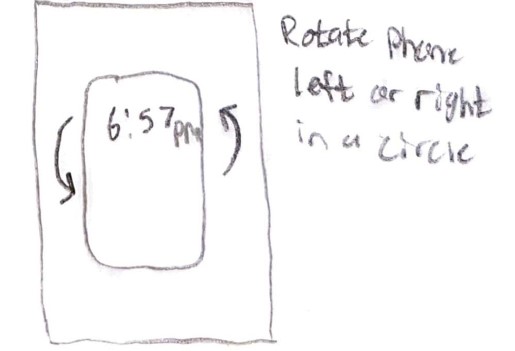 6:57pm
Rotate Phone
left or right
in a circle